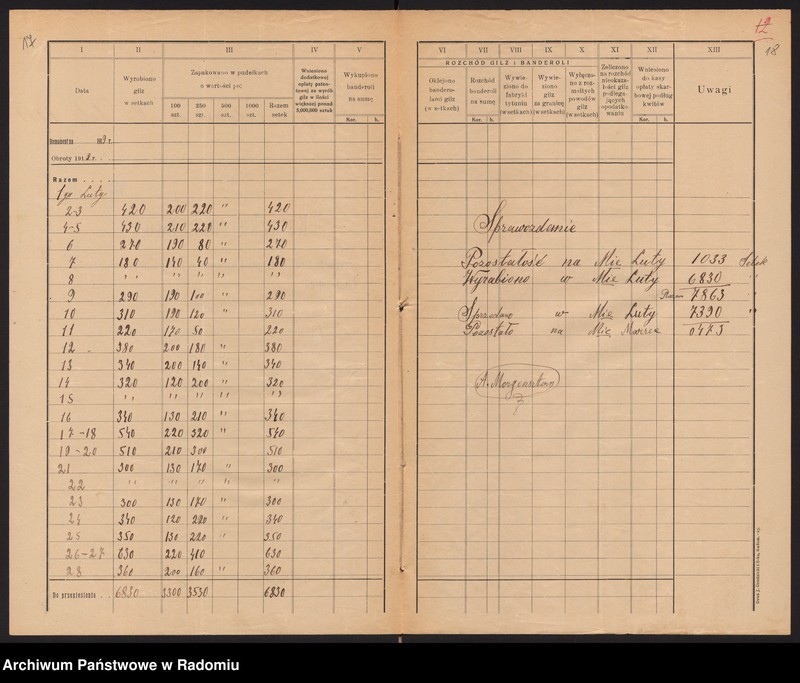 17
12
18
I II III IV V
Data
Wyrobiono gilz w setkach
Zapakowano w pudełkach o wartości po:
100 szt. 250 szt. 500 szt. 1000 szt. Razem setek
Wniesiono dodatkowej opłaty patentowej za wyrób gilz w ilości większej ponad 5,000,000 sztuk
Wykupiono banderoli na sumę
Kor. h.
Remanent na 191 r.
Obroty 191 r.
Razem
1go Luty
2-3 420 200 220 " 420
4-5 430 210 220 " 430
6 270 190 80 " 270
7 180 140 40 " 180
8 " " " " "
9 290 190 100 " 290
10 310 190 120 " 310
11 220 170 50 220
12 380 200 180 " 380
13 340 200 140 " 340
14 320 120 200 " 320
15 " " " " "
16 340 130 210 " 340
17-18 540 220 320 " 540
19-20 510 210 300 510
21 300 130 170 " 300
22 " " " " "
23 300 130 170 " 300
24 340 120 220 " 340
25 350 130 220 " 350
26-27 630 220 410 630
28 360 200 160 " 360
Do przeniesienia 6830 3300 3530 6830
VI VII VIII IX X XI XII XIII
ROZCHÓD GILZ i BANDEROLI
Oklejono banderolami gilz (w setkach)
Rozchód banderoli na sumę
Kor. h.
Wywieziono do fabryki tytuniu (w setkach)
Wywieziono gilz za granicę (w setkach)
Wyłączono z rozmaitych powodów gilz (w setkach)
Zaliczono na rozchód nieokazalości gilz podlegających opodatkowaniu
Wniesiono do kasy opłaty skarbowej podług kwitów
Kor. h.
Uwagi
Sprawozdanie
Pozostałość na Mic Luty 1033 Setek
Wyrabiono w Mic Luty 6830 "
Razem 7863 "
Sprzedano w Mic Luty 7390 "
Pozostało na Mic Marzec 0473
A. Morgensztern
Archiwum Państwowe w Radomiu